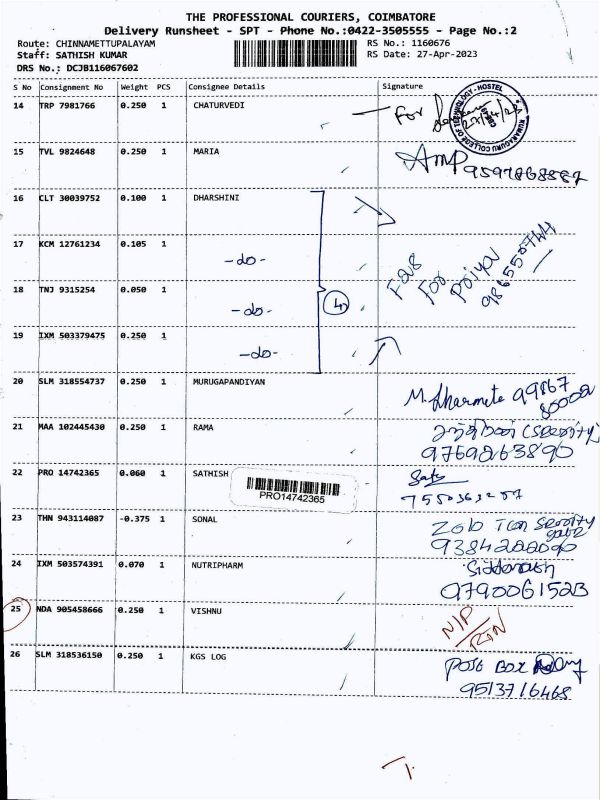 THE PROFESSIONAL COURIERS, COIMBATORE
Delivery Runsheet - SPT - Phone No.:0422-3505555 - Page No.:2
Route: CHINNAMETTUPALAYAM RS No.: 1160676
Staff: SATHISH KUMAR RS Date: 27-Apr-2023
DRS No.: DCJB116067602
S No Consignment No Weight PCS Consignee Details Signature
14 TRP 7981766 0.250 1 CHATURVEDI For
KUMARAGURU COLLEGE OF TECHNOLOGY-HOSTEL
15 TVL 9824648 0.250 1 MARIA
16 CLT 30039752 0.100 1 DHARSHINI
17 KCM 12761234 0.105 1 -do-
18 TNJ 9315254 0.050 1 -do- 4
For Priya
19 IXM 503379475 0.250 1 -do-
20 SLM 318554737 0.250 1 MURUGAPANDIYAN
21 MAA 102445430 0.250 1 RAMA (Security)
9769263890
22 PRO 14742365 0.060 1 SATHISH
PRO14742365
23 THN 943114087 -0.375 1 SONAL
24 IXM 503574391 0.070 1 NUTRIPHARM
9790061523
25 NDA 905458666 0.250 1 VISHNU N/P
RTN
26 SLM 318536150 0.250 1 KGS LOG Post Box
9513716468